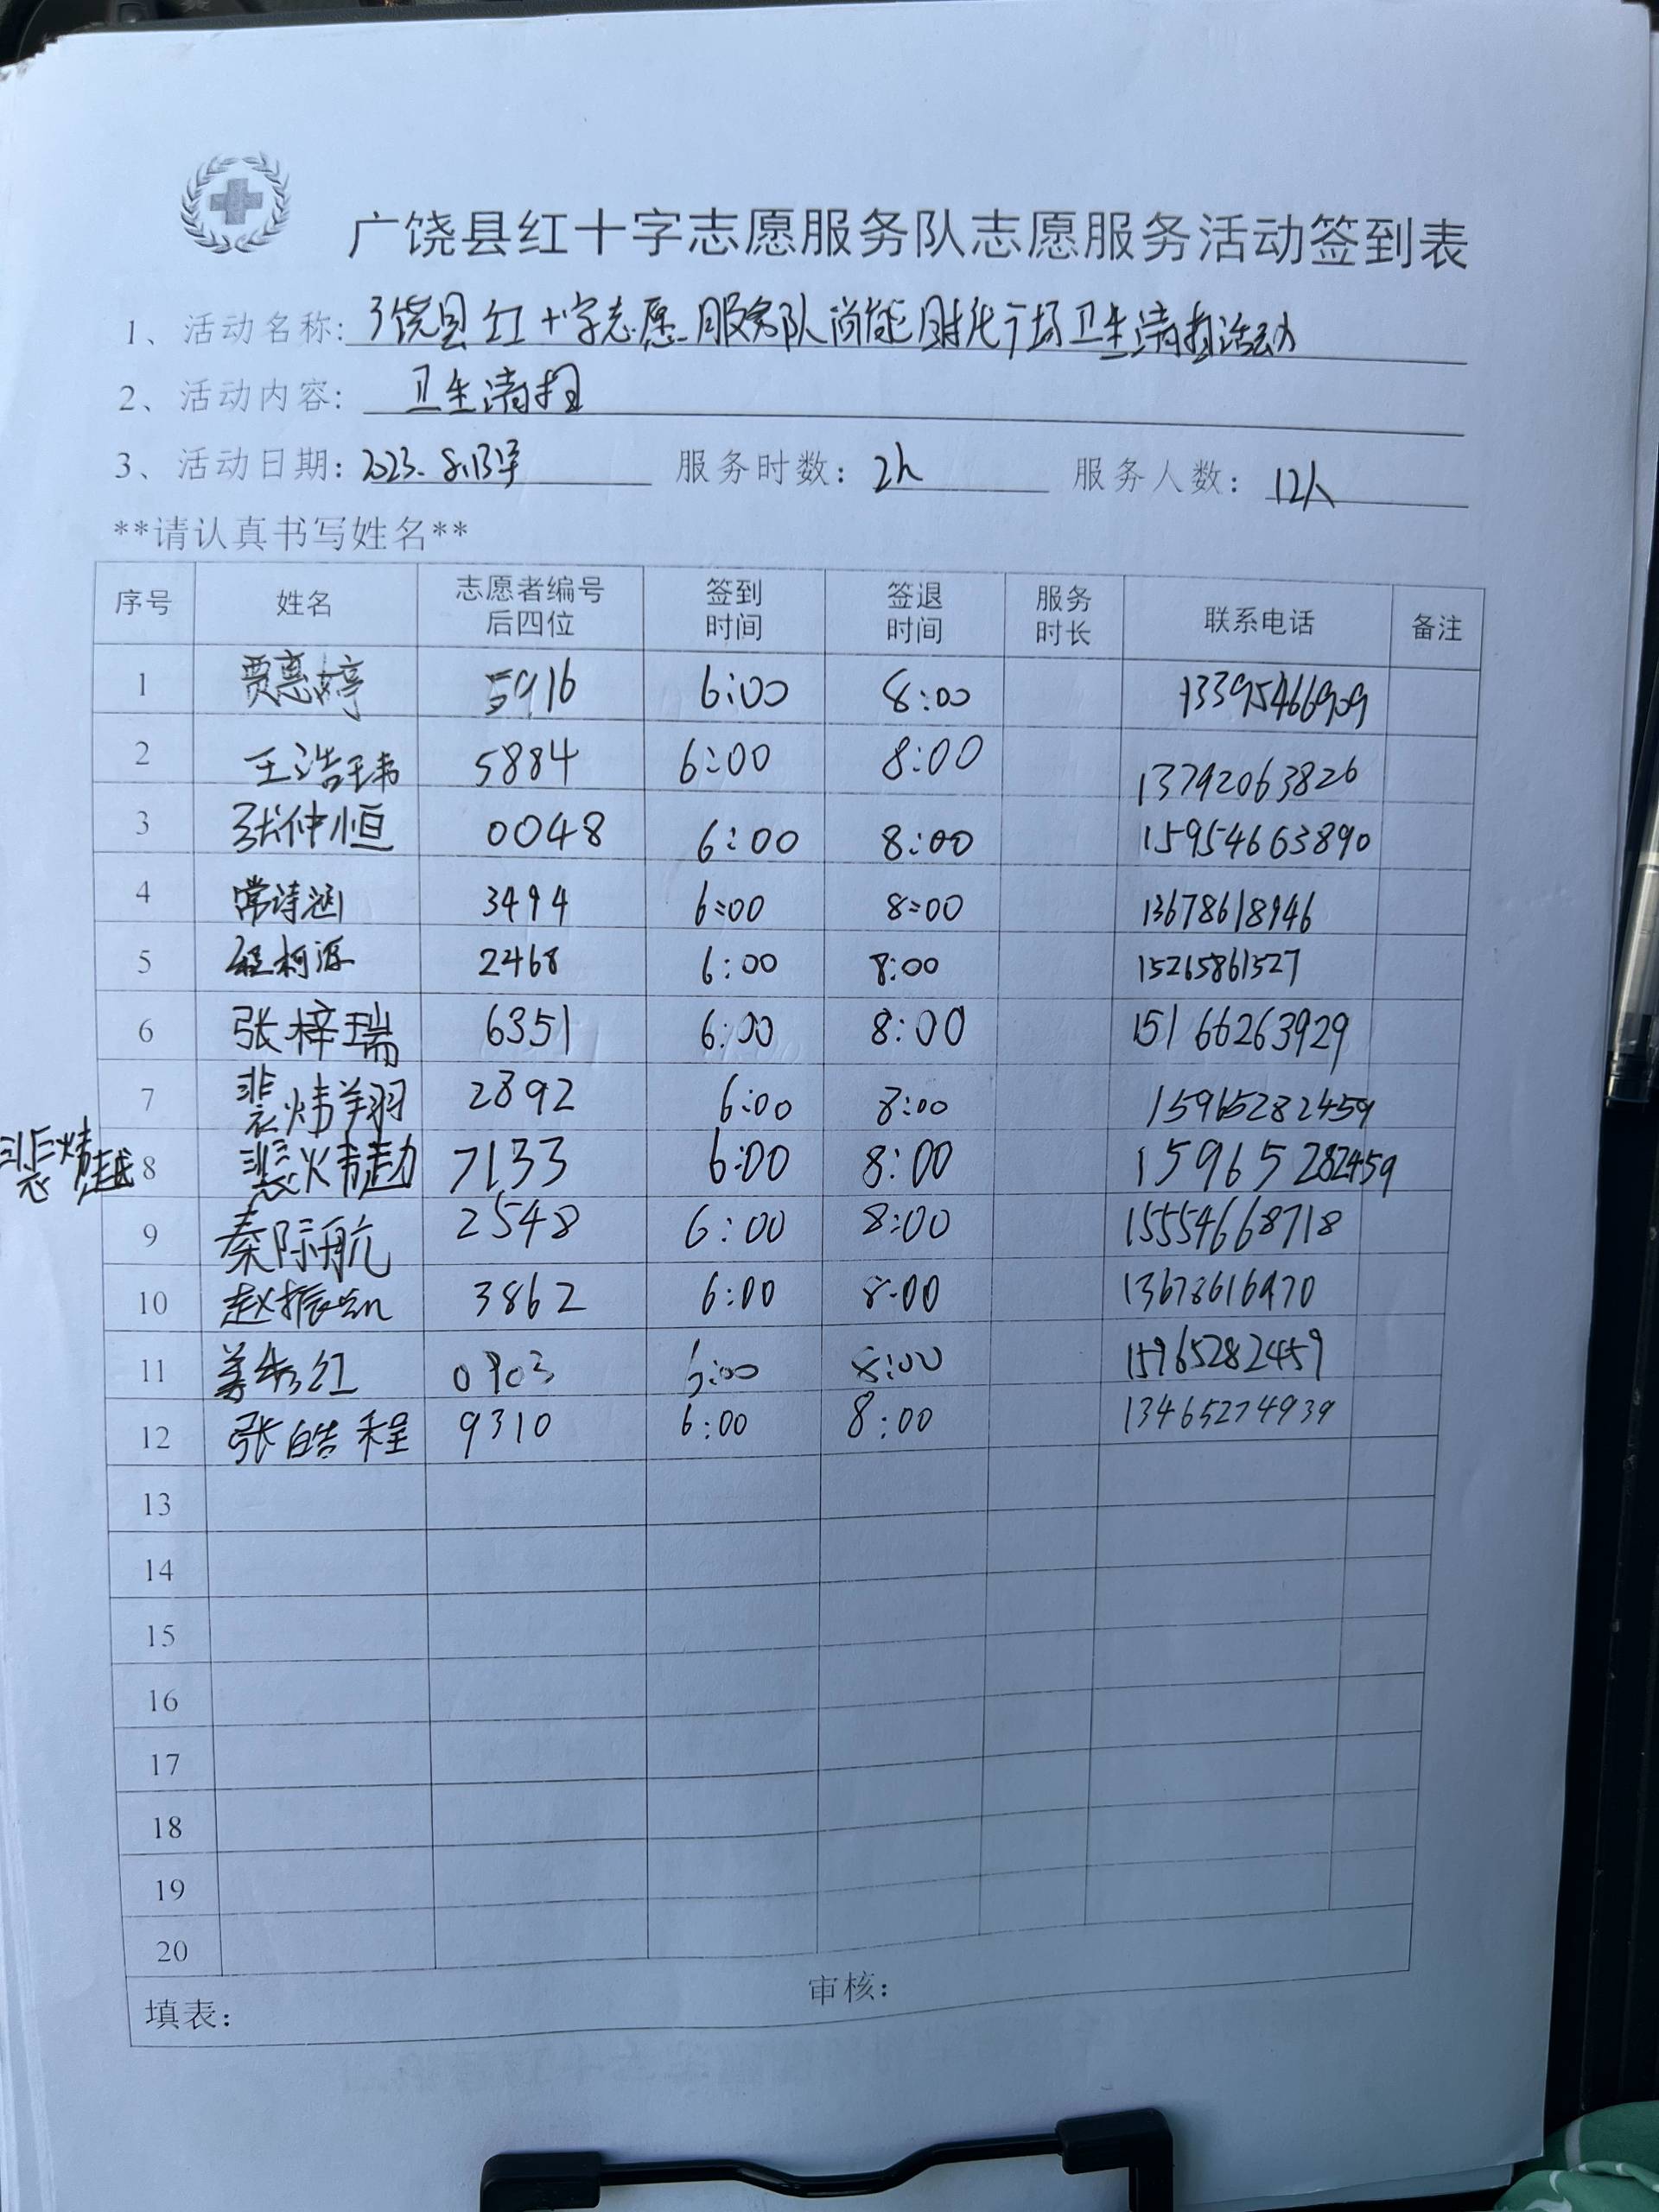 广饶县红十字志愿服务队志愿服务活动签到表
1、活动名称: 广饶县红十字志愿服务队尚能时代广场卫生清扫活动
2、活动内容: 卫生清扫
3、活动日期: 2023.8.13早 服务时数: 2h 服务人数: 12人
**请认真书写姓名**
序号 姓名 志愿者编号后四位 签到时间 签退时间 服务时长 联系电话 备注
1 贾惠婷 5916 6:00 8:00 13395466909
2 王浩玮 5884 6:00 8:00 13792063826
3 张仲恒 0048 6:00 8:00 15954663890
4 常诗涵 3494 6:00 8:00 13678618946
5 程柯源 2468 6:00 8:00 15265861527
6 张梓瑞 6351 6:00 8:00 15166263929
7 裴炜翔 2892 6:00 8:00 15965282459
裴炜越 8 裴炜 7133 6:00 8:00 15965282459
9 秦际航 2548 6:00 8:00 15554668718
10 赵振凯 3862 6:00 8:00 13678616970
11 姜秀红 0903 6:00 8:00 15965282459
12 张皓程 9310 6:00 8:00 13465274939
13
14
15
16
17
18
19
20
填表: 审核: